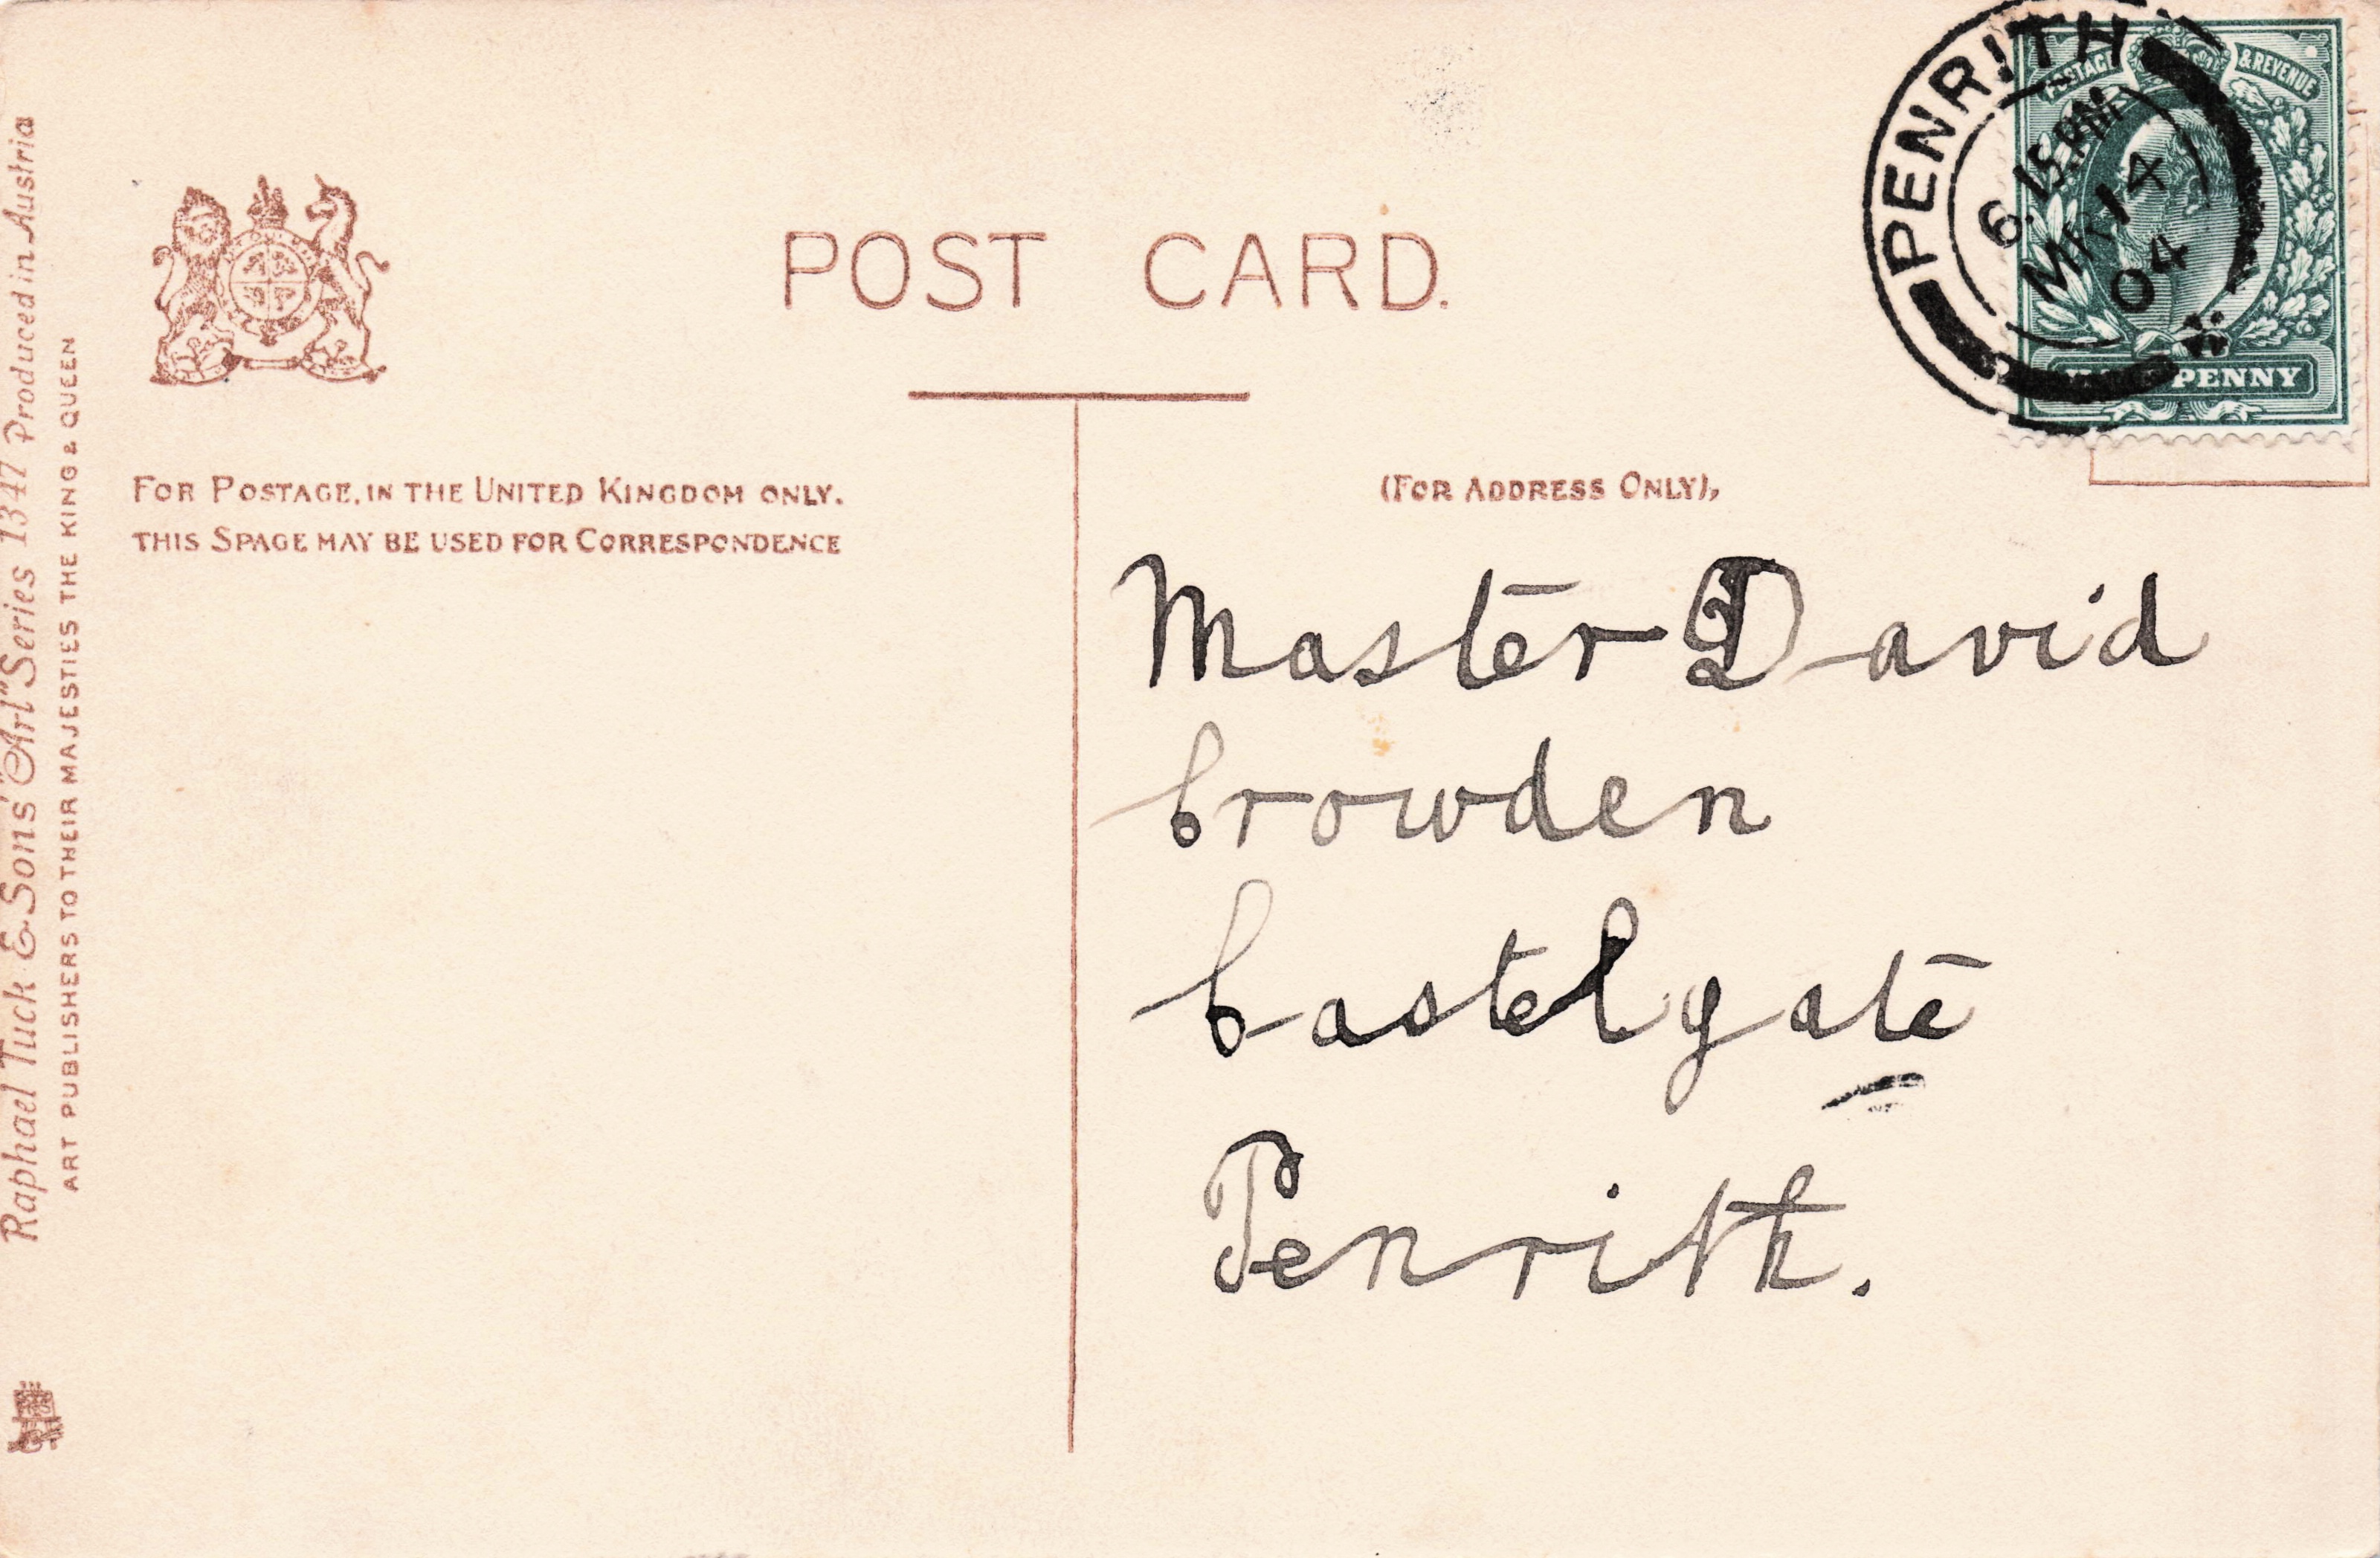 POST CARD.
FOR POSTAGE, IN THE UNITED KINGDOM ONLY.
THIS SPACE MAY BE USED FOR CORRESPONDENCE
(FOR ADDRESS ONLY),
Master David
Crowden
Castelgate
Penrith.
PENRITH
6.15PM
MR 14
04
POSTAGE & REVENUE
HALFPENNY
Raphael Tuck & Sons' "Art" Series 1347 Produced in Austria
ART PUBLISHERS TO THEIR MAJESTIES THE KING & QUEEN